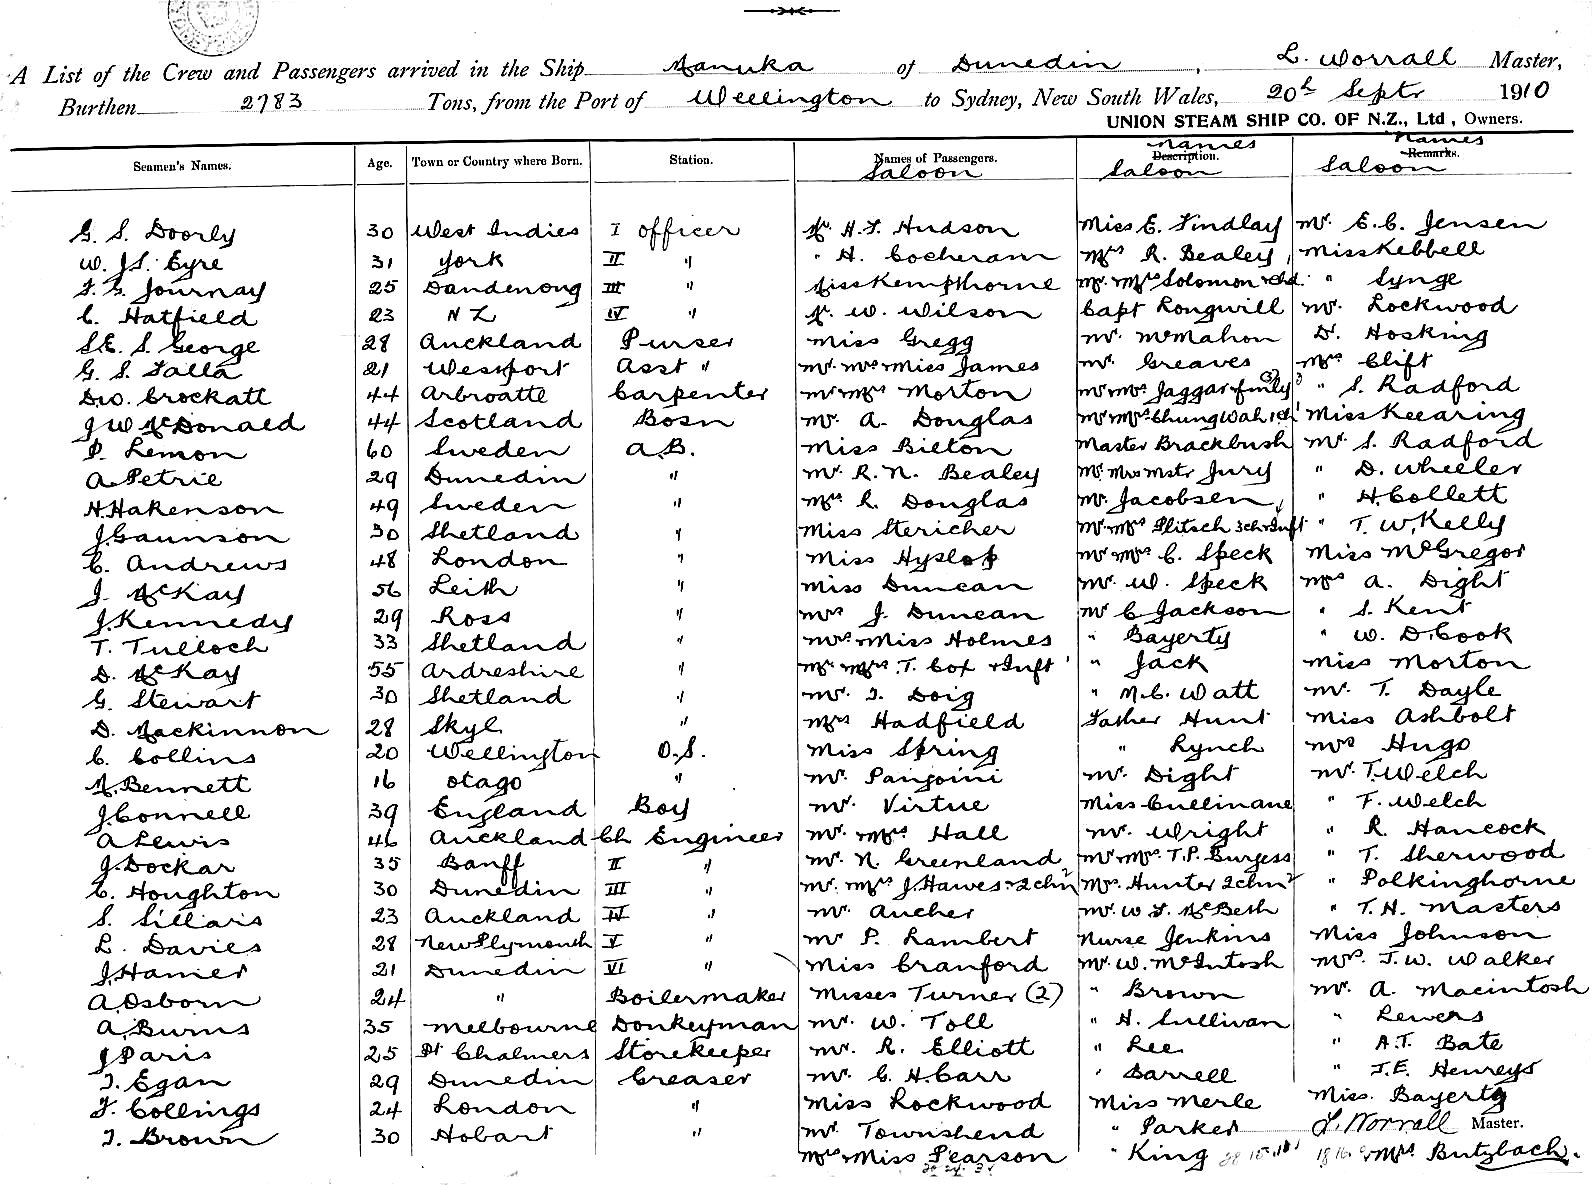 A List of the Crew and Passengers arrived in the Ship Manuka of Dunedin, L. Worrall Master,
Burthen 2783 Tons, from the Port of Wellington to Sydney, New South Wales, 20th Septr 1910
UNION STEAM SHIP CO. OF N.Z., Ltd, Owners.
Seamen's Names. Age. Town or Country where Born. Station. Names of Passengers. Saloon Description. Names Saloon Remarks. Names Saloon
G. S. Doorly 30 West Indies I officer Mr H. T. Hudson Miss E. Findlay Mr. E. C. Jensen
W. Js. Eyre 31 York II " " H. Cocheram Mrs R. Bealey Miss Kebbell
F. G. Journay 25 Dandenong III " Miss Kempthorne Mr. Mrs Solomon + chd. " Synge
C. Hatfield 23 N Z IV " Mr. W. Wilson Capt Longwill Mr. Lockwood
S.E. S. George 28 Auckland Purser Miss Gregg Mr. McMahon Dr. Hosking
G. S. Falla 21 Westport Asst " Mr. Mrs + Miss James Mr. Greaves Mrs Clift
D.W. Crockatt 44 Arbroatte Carpenter Mr Mrs Morton Mr Mrs Jaggar + family (3) " S. Radford
J W McDonald 44 Scotland Bosn Mr. A. Douglas Mr Mrs Chung Wah, 1 ch Miss Keearing
P. Lemon 60 Sweden A.B. Miss Bilton Master Brackbush Mr. S. Radford
A. Petrie 29 Dunedin " Mr. R. N. Bealey Mr. Mrs Mstr Jury " D. Wheeler
H. Hakenson 49 Sweden " Mrs R. Douglas Mr. Jacobsen " H. Collett
J. Gaunson 30 Shetland " Miss Stericher Mr Mrs Plitsch 3 ch + Inft " T. W. Kelly
C. Andrews 48 London " Miss Hyslop Mr Mrs C. Speck Miss McGregor
J. McKay 56 Leith " Miss Duncan Mr. W. Speck Mrs A. Dight
J. Kennedy 29 Ross " Mrs J. Duncan Mr C Jackson " S. Kent
T. Tulloch 33 Shetland " Mrs + Miss Holmes " Bayerty " W. D. Cook
D. McKay 55 Ardreshire " Mr Mrs T. Cox + Inft " Jack Miss Morton
G. Stewart 30 Shetland " Mr. J. Doig " M. C. Watt Mr. T. Dayle
D. Mackinnon 28 Skye " Mrs Hadfield Father Hunt Miss Ashbolt
C. Collins 20 Wellington O.S. Miss Spring " Lynch Mrs Hugo
A. Bennett 16 Otago " Mr. Panjoini Mr. Dight Mr. T. Welch
J. Connell 39 England Boy Mr. Virtue Miss Cullinane " F. Welch
A Lewis 46 Auckland Ch Engineer Mr. Mrs Hall Mr. Wright " R. Hancock
J. Dockar 35 Banff II " Mr. N. Greenland Mr Mrs. T. P. Burgess " T. Sherwood
C. Houghton 30 Dunedin III " Mr. Mrs J. Hawes + 2 chn Mrs Hunter 2 chn " Polkinghorne
S. Sillars 23 Auckland IV " Mr. Aucher Mr. W. J. McBeth " T. H. Masters
L. Davies 28 New Plymouth V " Mr P. Lambert Nurse Jenkins Miss Johnson
J. Hamer 21 Dunedin VI " Miss Cranford Mr. W. McIntosh Mrs. J. W. Walker
A. Osborn 24 " Boilermaker Misses Turner (2) " Brown Mr. A. Macintosh
A. Burns 35 Melbourne Donkeyman Mr. W. Toll " H. Sullivan " Lewers
J Paris 25 Pt Chalmers Storekeeper Mr. R. Elliott " Lee " A. T. Bate
J. Egan 29 Dunedin Greaser Mr. C. H. Carr " Barrell " J. E. Henreys
F. Collings 24 London " Miss Lockwood Miss Merle Miss. Bayerty
J. Brown 30 Hobart " Mr. Townshend " Parker L. Worrall Master.
Mrs + Miss Pearson " King Mrs. Butzbach.